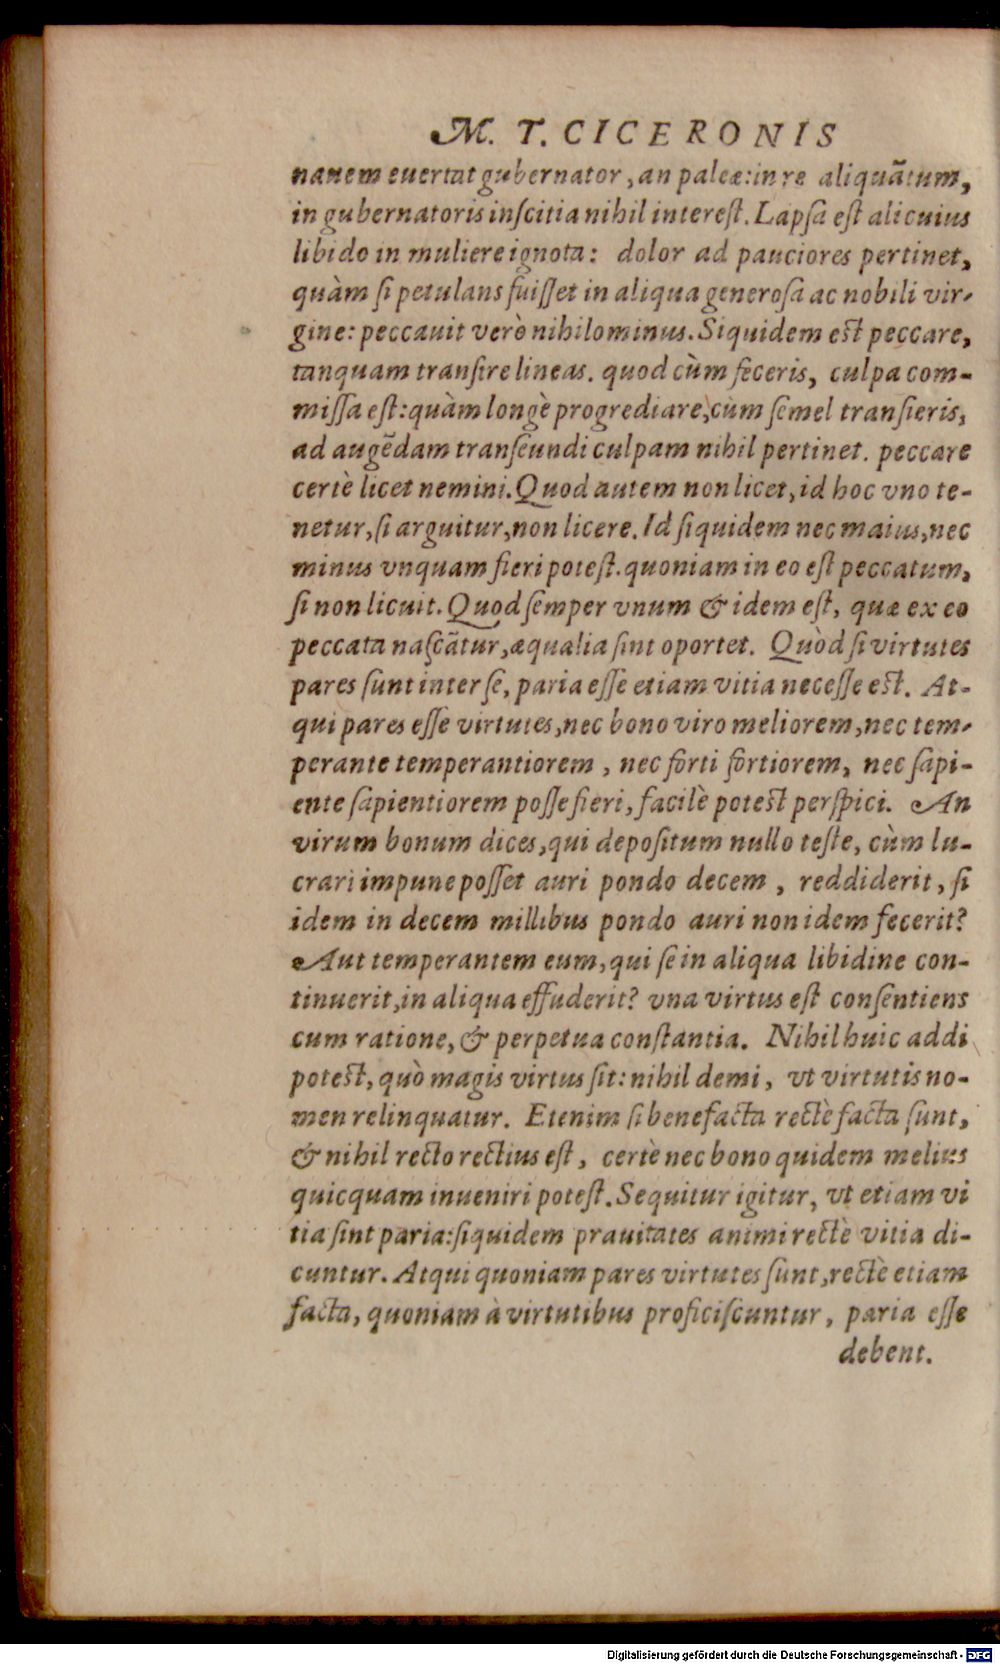 M. T. CICERONIS
nauem euertat gubernator, an paleæ: in re aliquãtum,
in gubernatoris inſcitia nihil intereſt. Lapſa eſt alicuius
libido in muliere ignota: dolor ad pauciores pertinet,
quàm ſi petulans fuiſſet in aliqua generoſa ac nobili vir-
gine: peccauit verò nihilominus. Siquidem eſt peccare,
tanquam tranſire lineas. quod cùm feceris, culpa com-
miſſa eſt: quàm longè progrediare, cùm ſemel tranſieris,
ad augẽdam tranſeundi culpam nihil pertinet. peccare
certè licet nemini. Quod autem non licet, id hoc vno te-
netur, ſi arguitur, non licere. Id ſiquidem nec maius, nec
minus vnquam fieri poteſt. quoniam in eo eſt peccatum,
ſi non licuit. Quod ſemper vnum & idem eſt, quæ ex eo
peccata naſcãtur, æqualia ſint oportet. Quòd ſi virtutes
pares ſunt inter ſe, paria eſſe etiam vitia neceſſe eſt. At-
qui pares eſſe virtutes, nec bono viro meliorem, nec tem-
perante temperantiorem, nec forti fortiorem, nec ſapi-
ente ſapientiorem poſſe fieri, facilè poteſt perſpici. An
virum bonum dices, qui depoſitum nullo teſte, cùm lu-
crari impune poſſet auri pondo decem, reddiderit, ſi
idem in decem millibus pondo auri non idem fecerit?
Aut temperantem eum, qui ſe in aliqua libidine con-
tinuerit, in aliqua effuderit? vna virtus eſt conſentiens
cum ratione, & perpetua conſtantia. Nihil huic addi
poteſt, quò magis virtus ſit: nihil demi, vt virtutis no-
men relinquatur. Etenim ſi benefacta rectè facta ſunt,
& nihil recto rectius eſt, certè nec bono quidem melius
quicquam inueniri poteſt. Sequitur igitur, vt etiam vi
tia ſint paria: ſiquidem prauitates animi rectè vitia di-
cuntur. Atqui quoniam pares virtutes ſunt, rectè etiam
facta, quoniam à virtutibus proficiſcuntur, paria eſſe
debent.
Digitalisierung gefördert durch die Deutsche Forschungsgemeinschaft - DFG